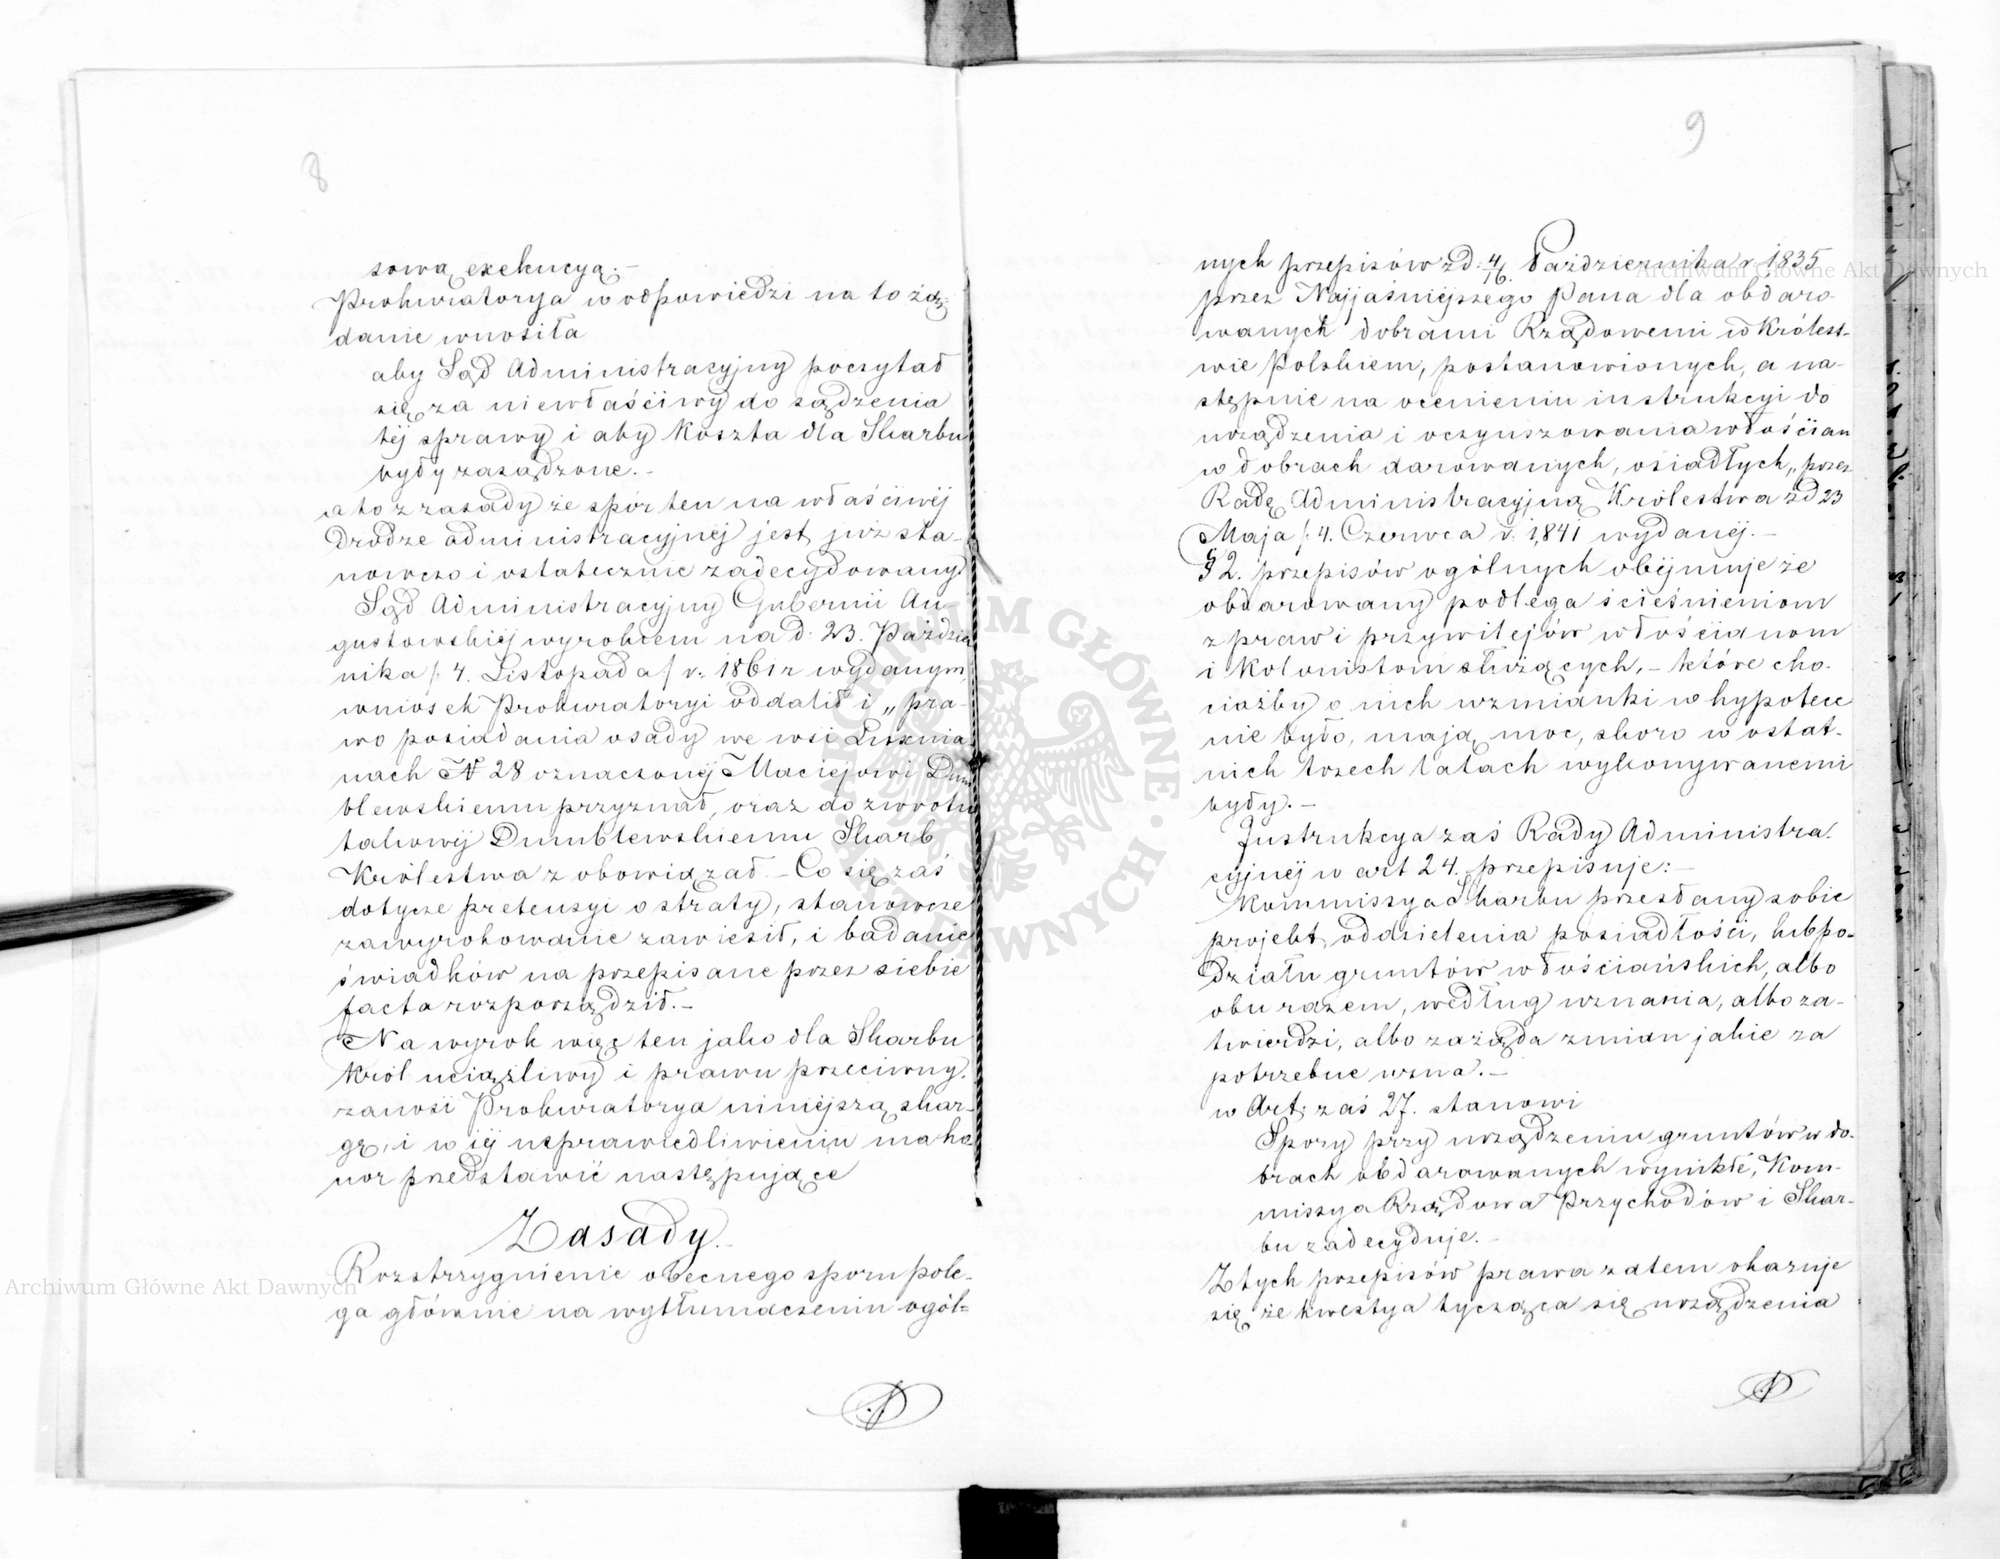 8
sową exekucyą.-
Prokuratorya w odpowiedzi na to żą-
danie wnosiła
aby Sąd Administracyjny poczytał
się za niewłaściwy do sądzenia
téj sprawy i aby koszta dla Skarbu
były zasądzone.-
a to z zasady że spór ten na właściwéj
drodze administracyjnéj jest już sta-
nowczo i ostatecznie zadecydowany
Sąd Administracyjny Gubernii Au-
gustowskiéj wyrokiem na d. 23. Paździer
nika /: 4. Listopada / r. 1861 r wydanym,
wniosek Prokuratoryi oddalił i „pra-
wo posiadania osady we wsi Luxnia
nach N 28 oznaczonéj Maciejowi Dum
blewskiemu przyznał, oraz do zwrotu
takowéj Dumblewskiemu Skarb
Królestwa zobowiązał.- Co się zaś
dotycze pretensyi o straty, stanowcze
zawyrokowanie zawiesił, i badanie
świadków na przepisane przez siebie
facta rozporządził.-
Na wyrok więc ten jako dla Skarbu
Król uciążliwy i prawu przeciwny.
zanosi Prokuratorya niniejszą skar-
gę, i w jéj usprawiedliwieniu ma ho
nor przedstawić następujące
Zasady.-
Rozstrzygnienie obecnego sporu pole-
ga głównie na wytłumaczeniu ogól-
9
nych przepisów z d: 4/16. Października r. 1835
przez Najjaśniejszego Pana dla obdaro-
wanych dobrami Rządowemi w Królest-
wie Polskiem, postanowionych, a na-
stępnie na ocenieniu instrukcyi do
urządzenia i oczynszowania włościan
w dobrach darowanych, osiadłych, „przez
Radę Administracyjną Królestwa z d 23
Maja /: 4. Czerwca r. 1,841 wydanéj.-
§ 2. przepisów ogólnych obéjmuje że
obdarowany podlega ścieśnieniom
z praw i przywilejów włościanom
i kolonistom służących, - które cho-
ciażby o nich wzmianki w hypotece
nie było, mają moc, skoro w ostat-
nich trzech latach wykonywanemi
były.-
Instrukcya zaś Rady Administra-
cyjnéj w art 24. przepisuje:-
Kommissya Skarbu przesłany sobie
projekt oddzielenia posiadłości, lub po-
działu gruntów włościańskich, albo
obu razem, według uznania, albo za-
twierdzi, albo zażąda zmian jakie za
potrzebne uzna.-
w Art: zaś 27. stanowi
Spory przy urządzeniu gruntów w do-
brach obdarowanych wynikłe, Kom-
missya Rządowa Przychodów i Skar-
bu zadecyduje.-
Z tych przepisów prawa zatem okazuje
się że kwestya tycząca się urządzenia
Archiwum Główne Akt Dawnych
Archiwum Główne Akt Dawnych
ARCHIWUM GŁÓWNE AKT DAWNYCH